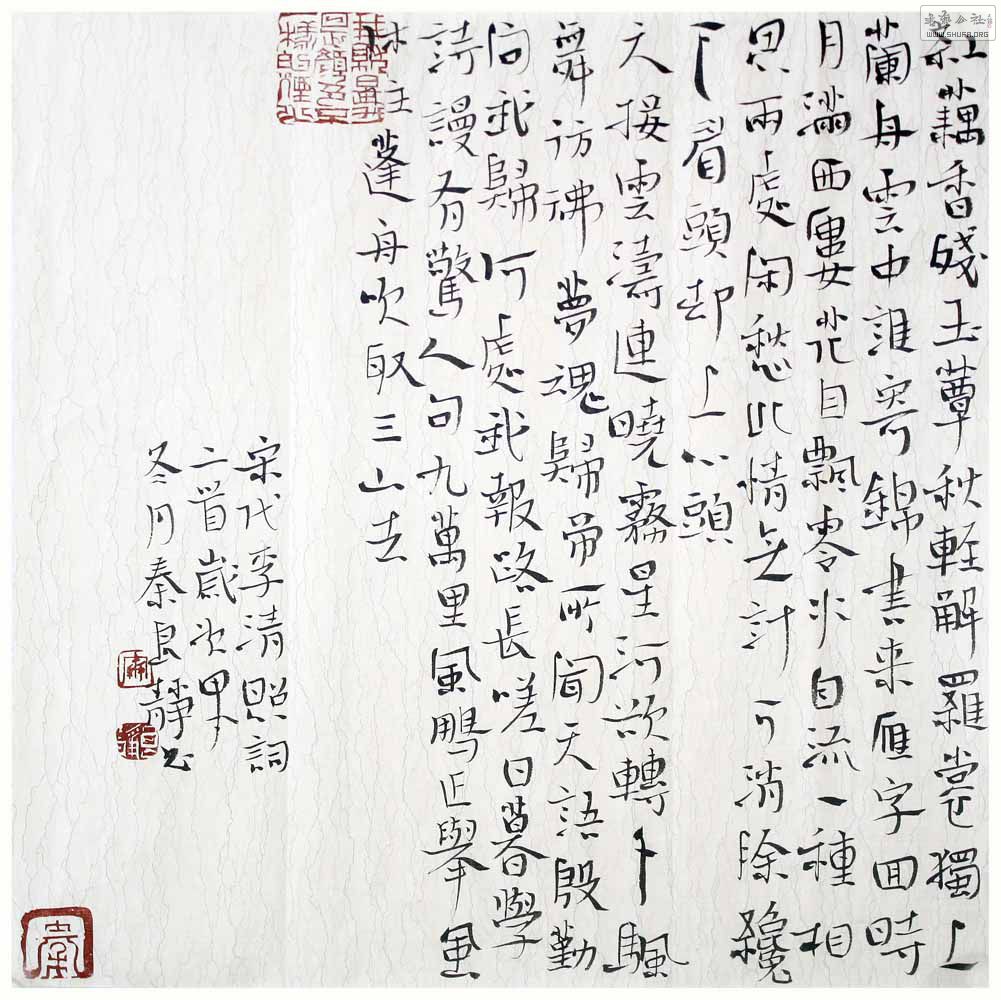 紅藕香殘玉簟秋輕解羅裳獨上
蘭舟雲中誰寄錦書來雁字回時
月滿西樓花自飄零水自流一種相
思兩處閑愁此情无計可消除纔
下眉頭却上心頭
天接雲濤連曉霧星河欲轉千颿
舞彷彿夢魂歸帝所聞天語殷勤
問我歸何處我報路長嗟日暮學
詩謾有驚人句九萬里風鵬正舉風
休住蓬舟吹取三山去
宋代李清照詞
二首歲次甲午
冬月秦良靜书
WWW.SHUFA.ORG